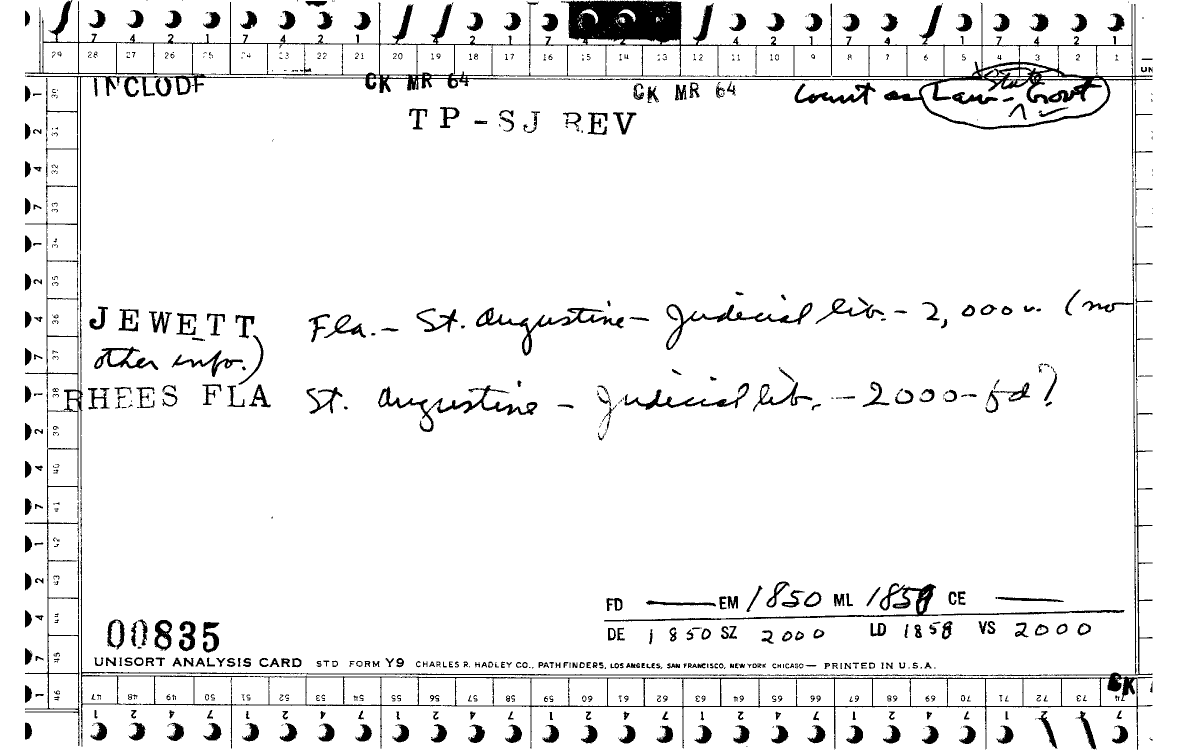 29 28 27 26 25 24 23 22 21 20 19 18 17 16 15 14 13 12 11 10 9 8 7 6 5 4 3 2 1
INCLUDE CK MR 64 CK MR 64 Count as Law - State Govt
TP-SJ REV
JEWETT Fla. - St. Augustine - Judicial lib. - 2,000 v. (no
other info.)
RHEES FLA St. Augustine - Judicial lib. - 2000 - fd?
FD — EM 1850 ML 1858 CE —
DE 1850 SZ 2000 LD 1858 VS 2000
00835
UNISORT ANALYSIS CARD STD FORM Y9 CHARLES R. HADLEY CO., PATHFINDERS, LOS ANGELES, SAN FRANCISCO, NEW YORK CHICAGO — PRINTED IN U.S.A.
CK
47 48 49 50 51 52 53 54 55 56 57 58 59 60 61 62 63 64 65 66 67 68 69 70 71 72 73 74